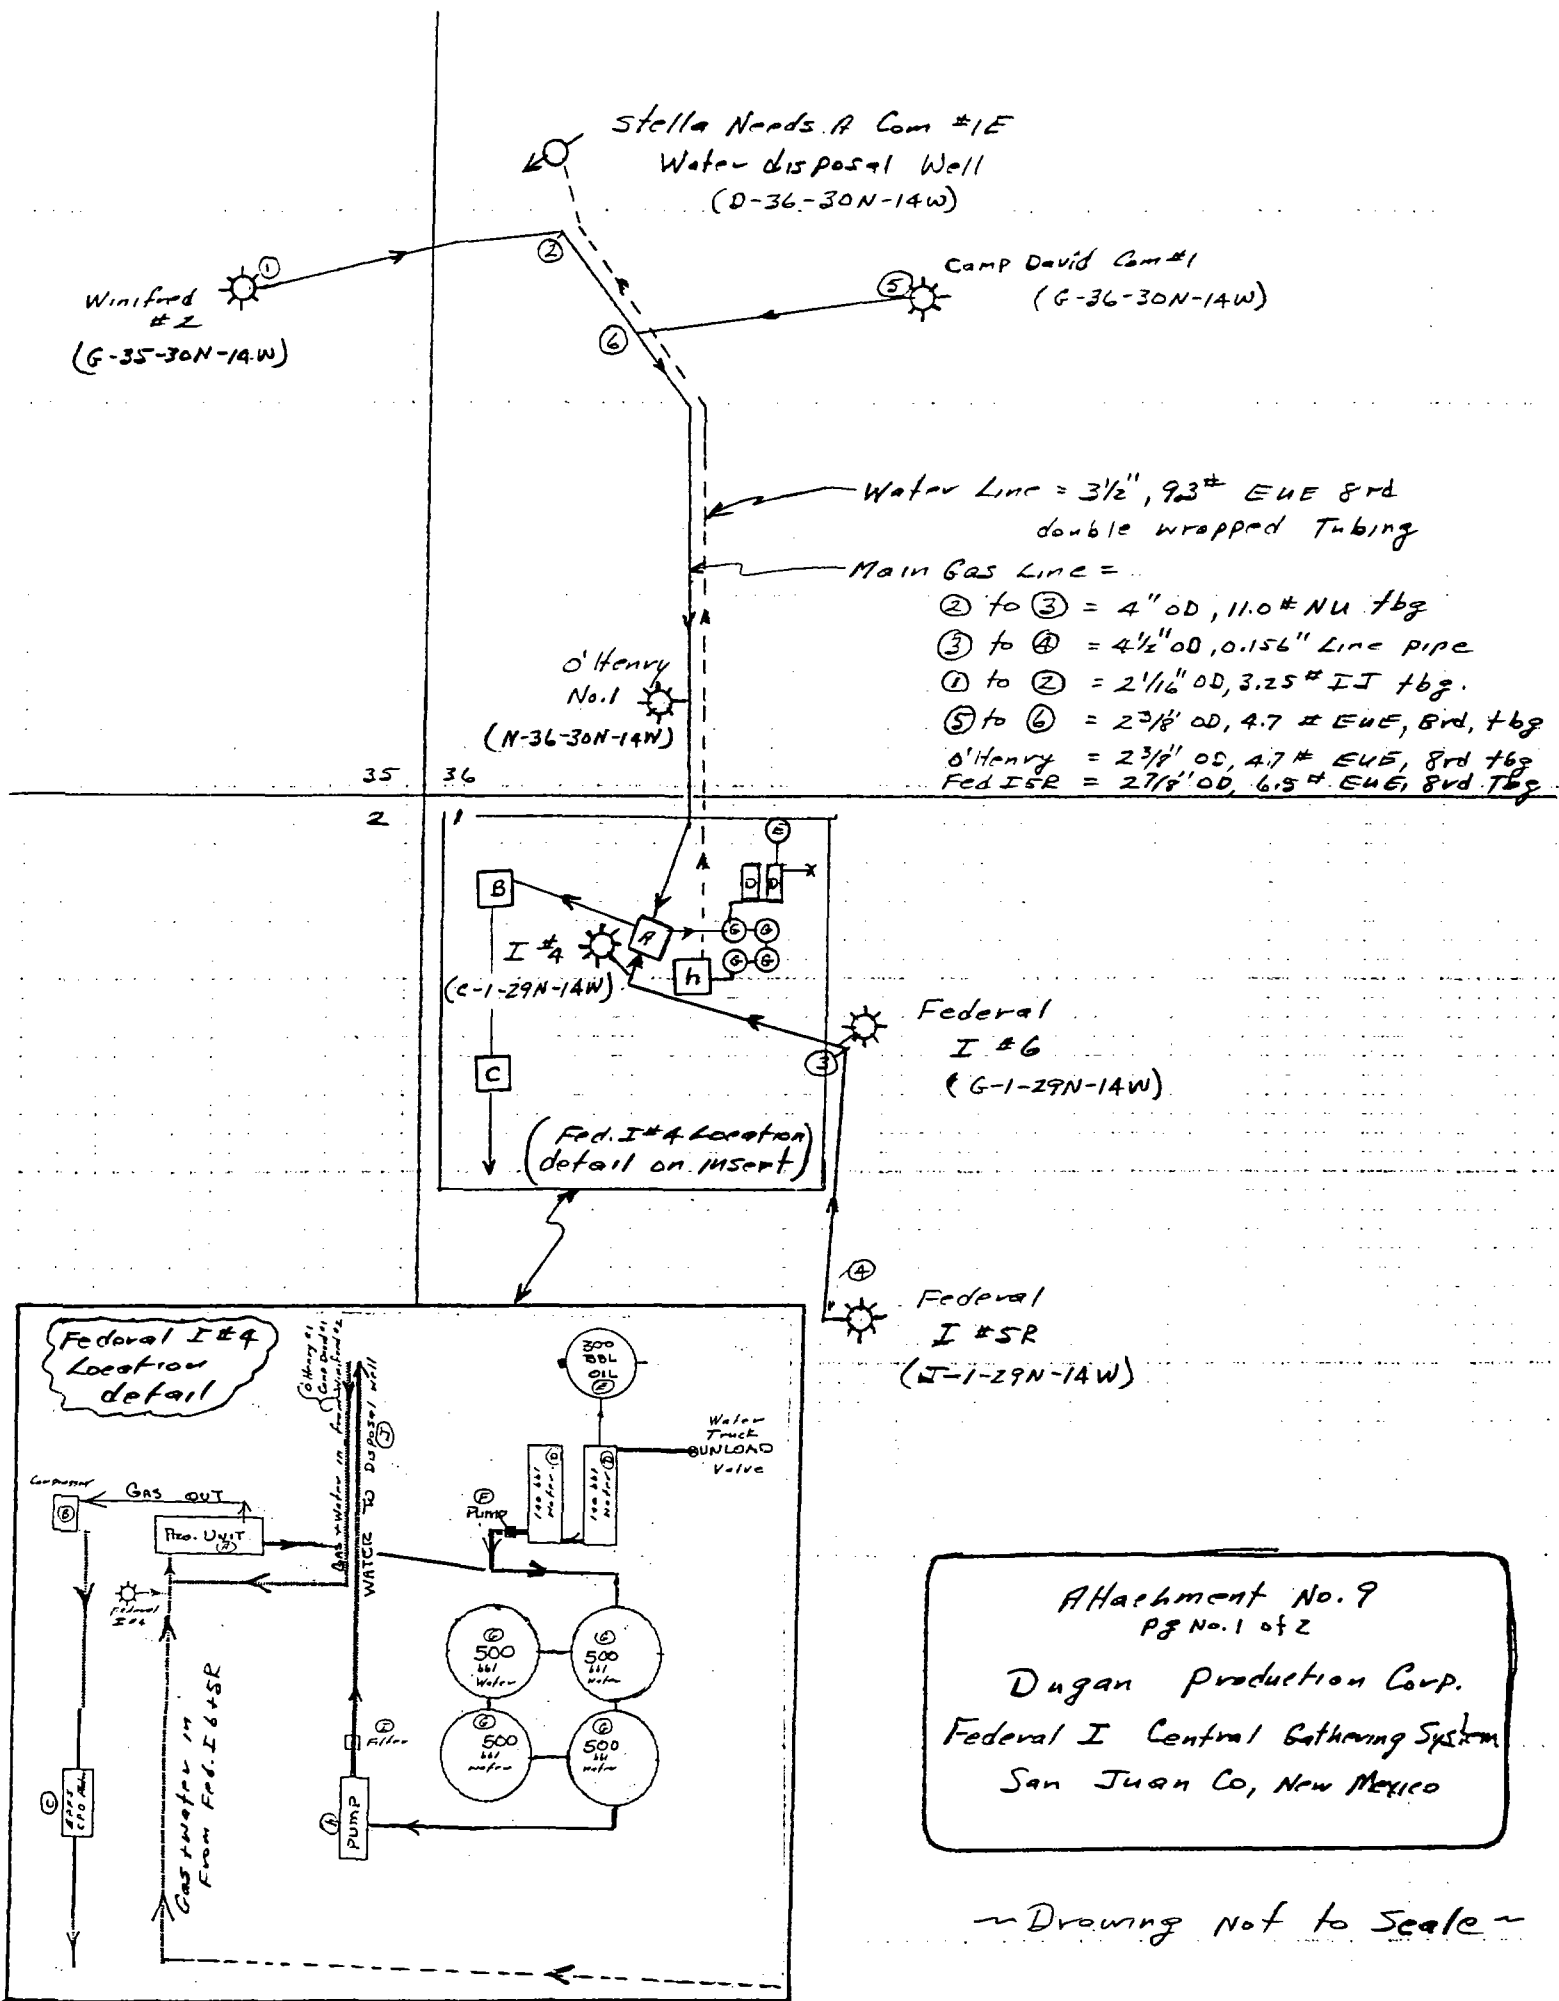 Stella Needs A Com #1E
Water disposal Well
(D-36-30N-14W)
①
②
Winifred
#2
(G-35-30N-14W)
⑤
Camp David Com #1
(G-36-30N-14W)
⑥
Water Line = 3½", 9.3# EUE 8rd
double wrapped Tubing
Main Gas Line =
② to ③ = 4" OD, 11.0# NU tbg
③ to ④ = 4½" OD, 0.156" Line pipe
① to ② = 2 1/16" OD, 3.25# IJ tbg.
⑤ to ⑥ = 2 3/8" OD, 4.7 # EUE, 8rd, tbg
O'Henry = 2 3/8" OD, 4.7 # EUE, 8rd tbg
Fed I 5R = 2 7/8" OD, 6.5 # EUE, 8rd Tbg
O'Henry
No.1
(N-36-30N-14W)
35 36
2 1
E
B
D D
A
G G
G G
h
I #4
(C-1-29N-14W)
C
③
Federal
I #6
(G-1-29N-14W)
(Fed. I #4 Location
detail on insert)
④
Federal
I #5R
(J-1-29N-14W)
Federal I #4
Location
detail
O'Henry #1
Camp David #1
Gas + Water in from Winifred #2
WATER TO DISPOSAL Well
Ⓙ
300
BBL
OIL
Ⓔ
Water
Truck
UNLOAD
Valve
Ⓓ
bbl
Water
Ⓓ
bbl
Water
Ⓕ
Pump
Compressor
Ⓑ
GAS OUT
Pro. UNIT
(A)
Federal
I #4
Ⓖ
500
bbl
Water
Ⓖ
500
bbl
Water
Ⓖ
500
bbl
water
Ⓖ
500
bbl
water
Ⓘ
Filter
Ⓗ
PUMP
Ⓒ
CPD
Gas + Water in
From Fed. I 6 + 5R
Attachment No. 9
Pg No. 1 of 2
Dugan Production Corp.
Federal I Central Gathering System
San Juan Co, New Mexico
~ Drawing Not to Scale ~